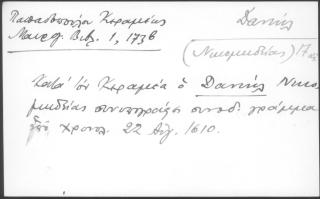 Παπαδοπούλου Κεραμέως
Μαυρ. Βιβ. 1, 173β
Δανιήλ
(Νικομηδείας) 17
Κατὰ τὸν Κεραμέα ὁ Δανιὴλ Νικο-
μηδείας συνυπογράφει συνοδ. γράμμα
ὑπὸ χρονολ. 22 Αὐγ. 1610.